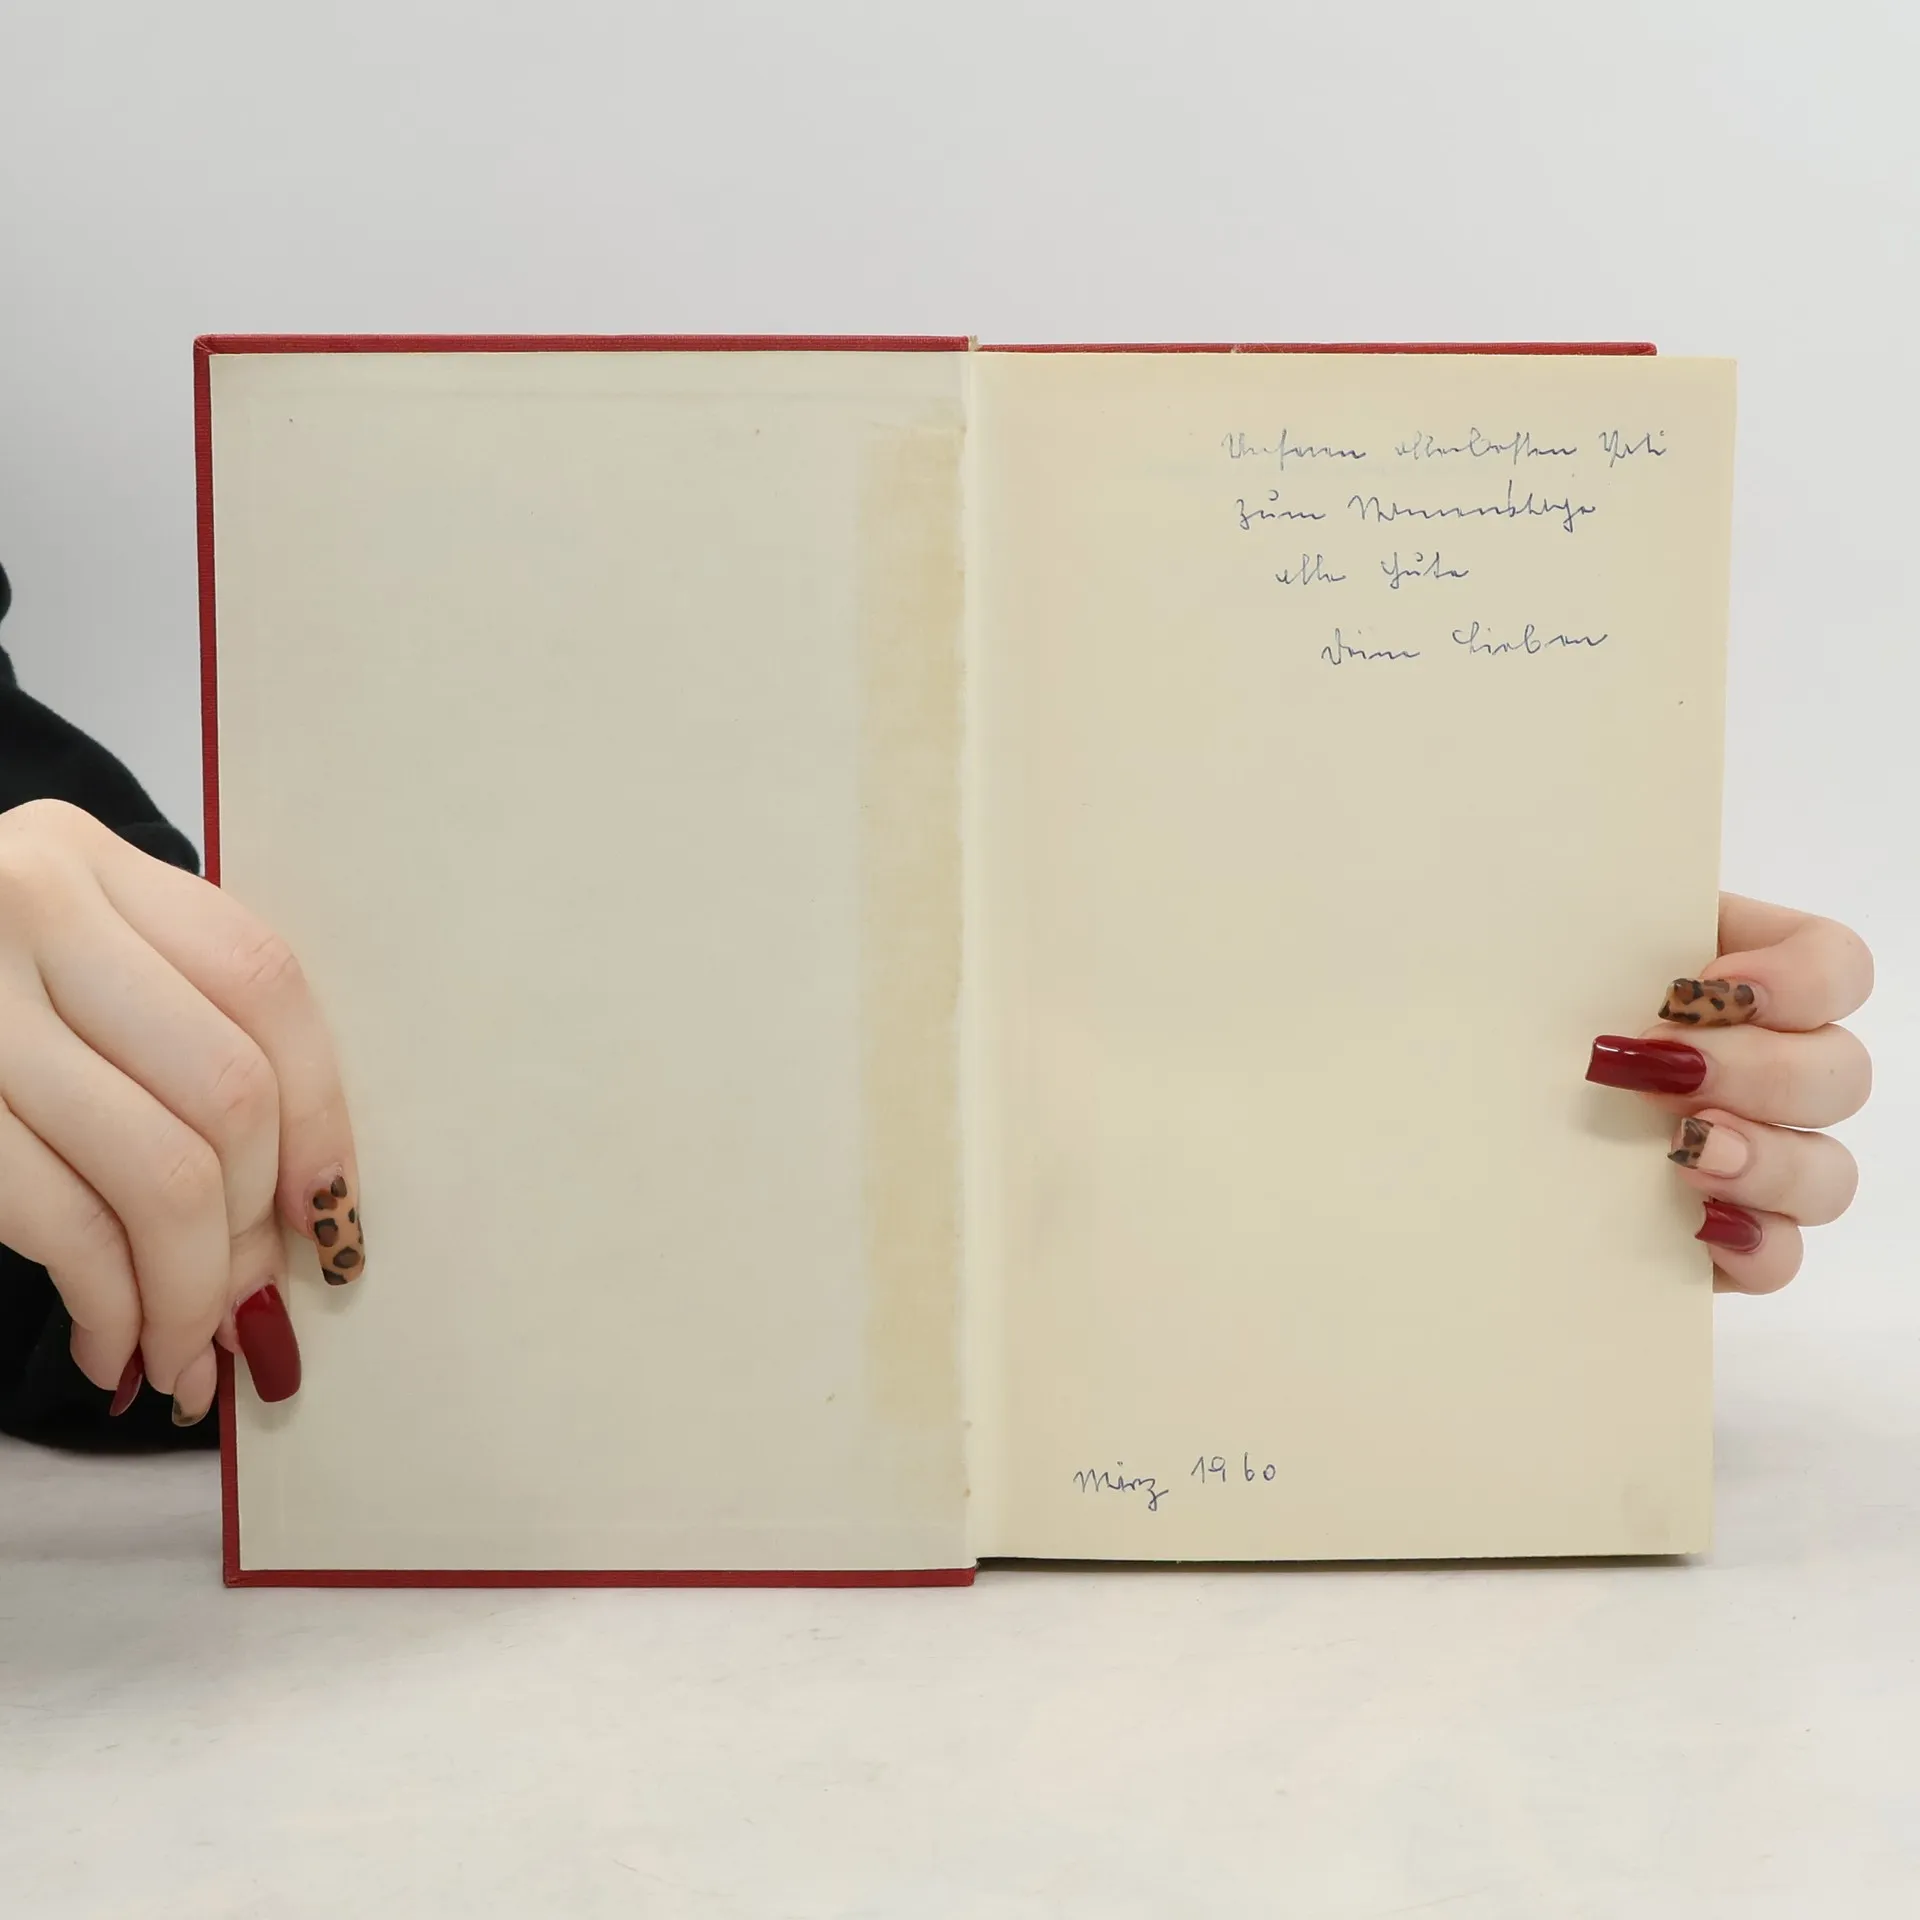 Unserem allerbesten
zum Namenstage
alles Gute
Deine Lieben
März 1960